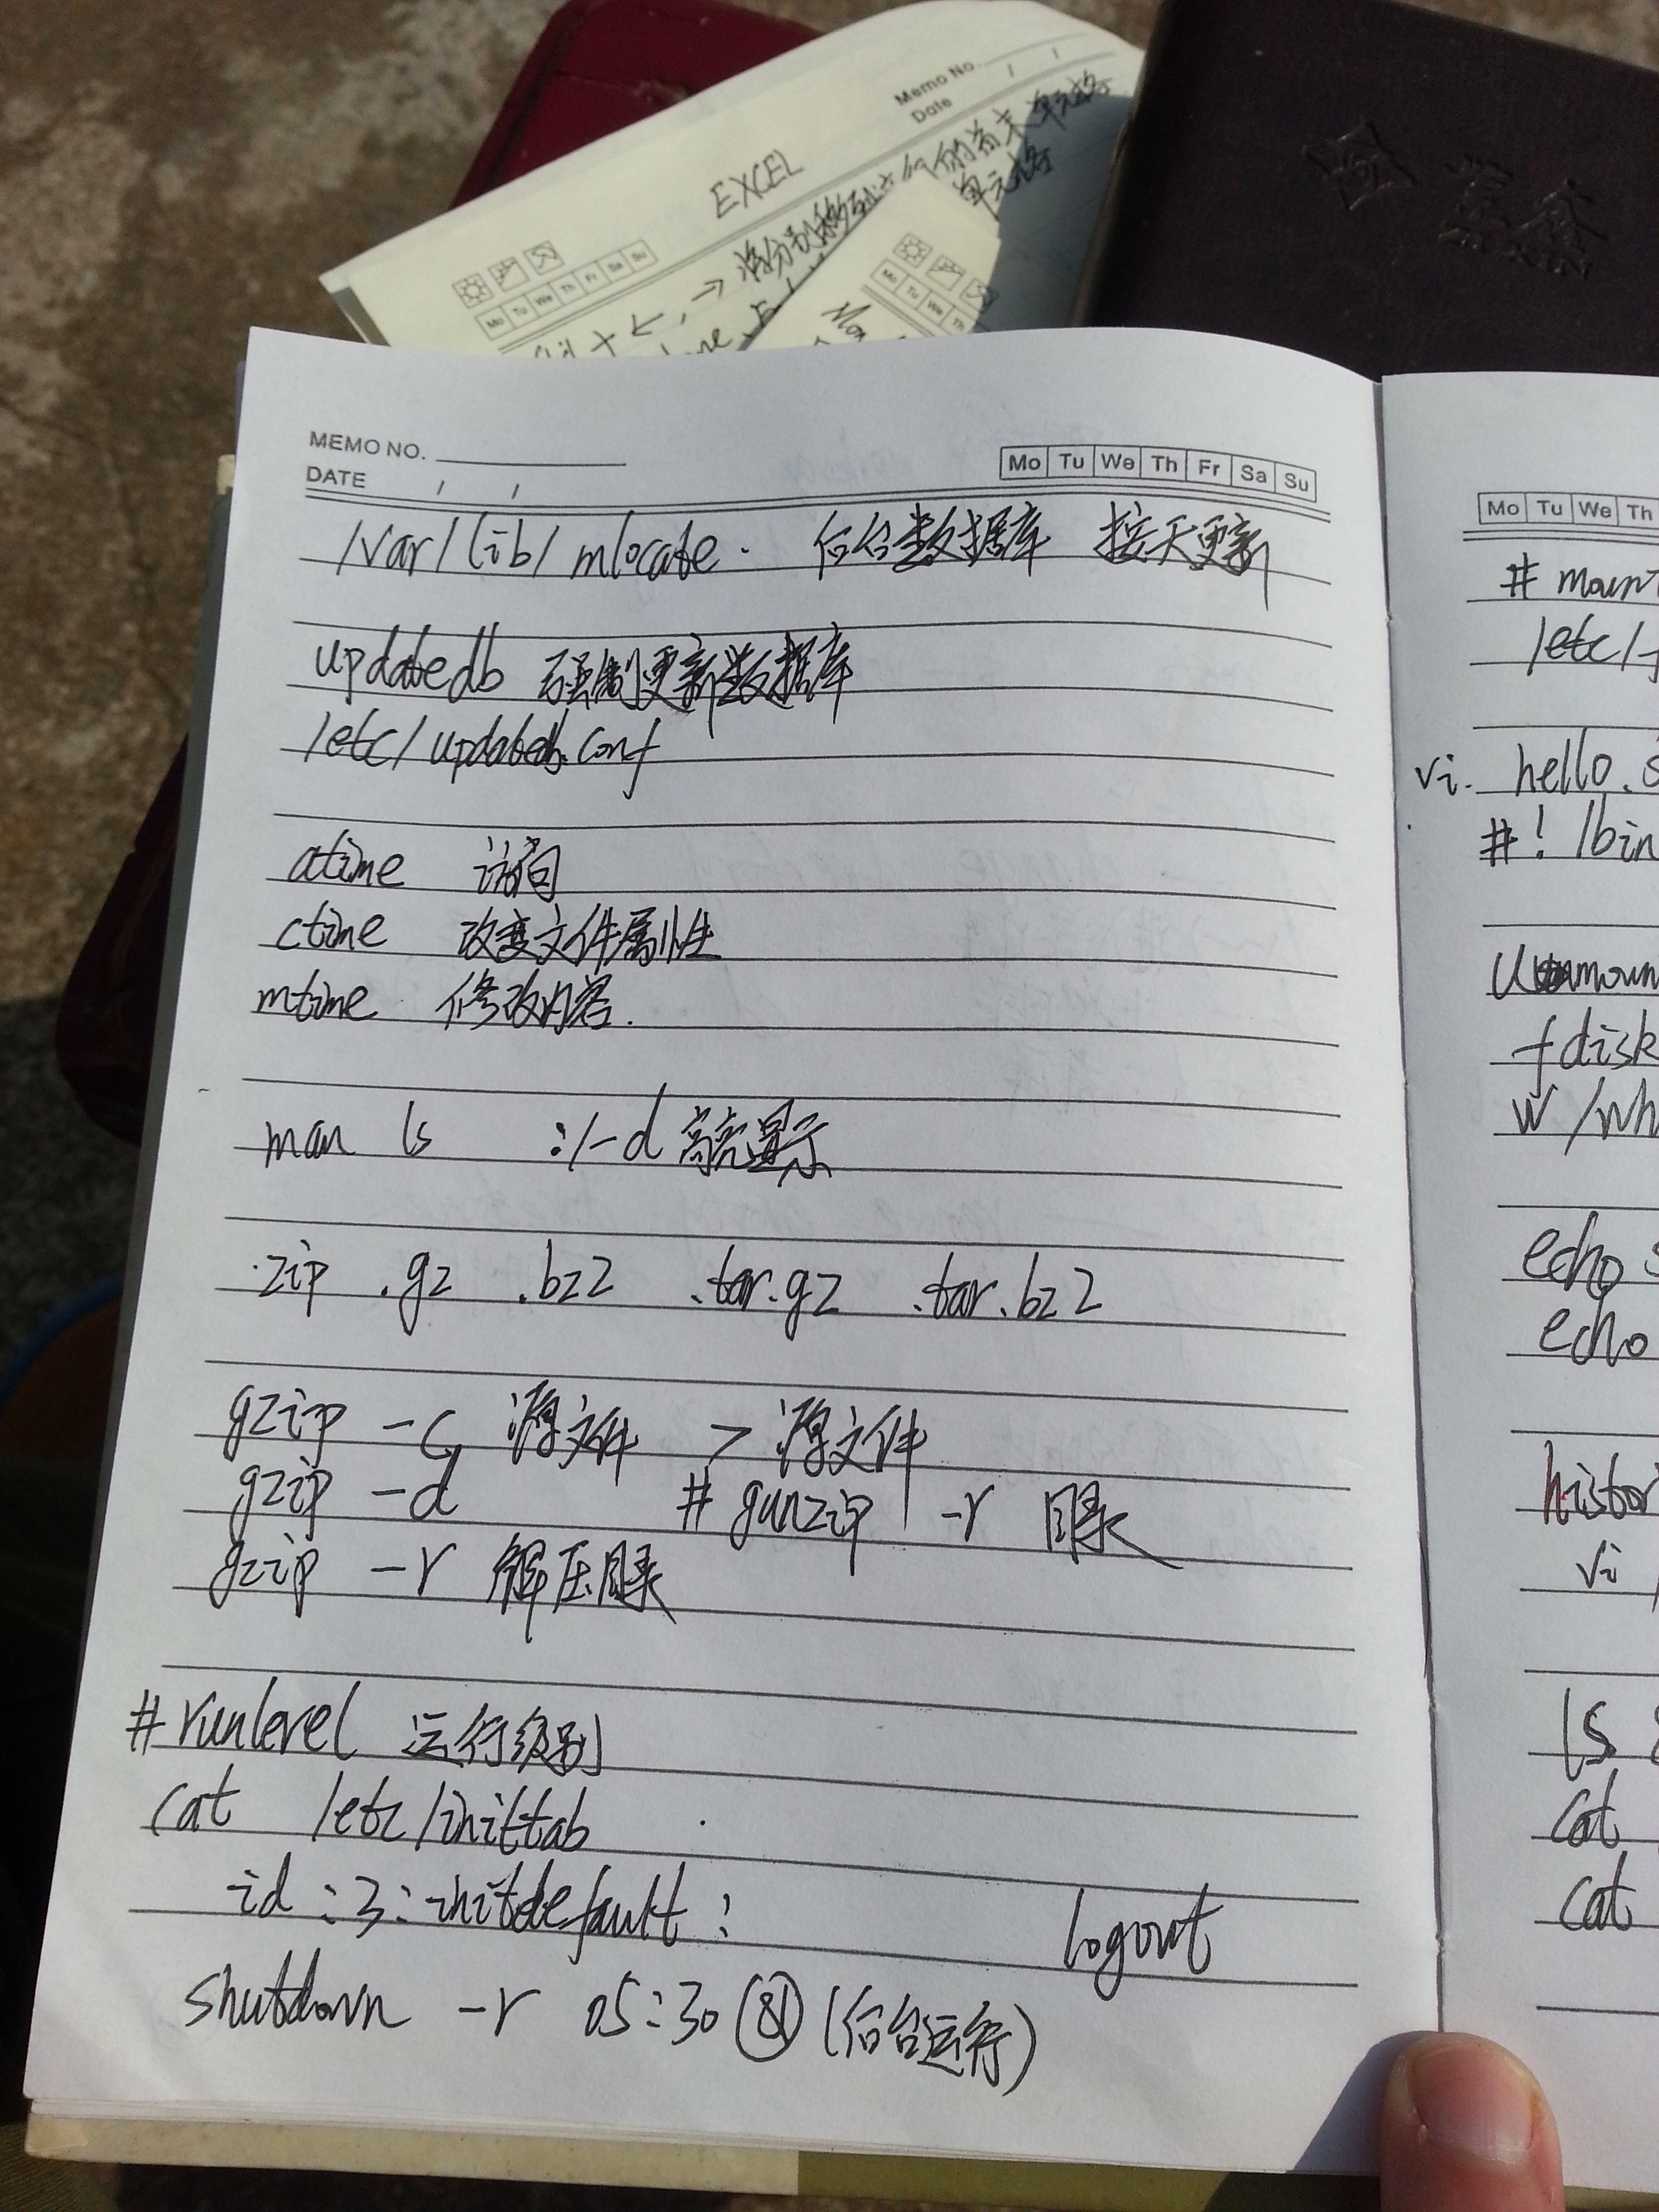 Memo No.
Date / /
EXCEL
Mo Tu We Th Fr Sa Su
单元格
Mo Tu We Th
MEMO NO.
DATE / /
Mo Tu We Th Fr Sa Su
/var/lib/mlocate. 后台数据库 按天更新
updatedb 强制更新数据库
/etc/updatedb.conf
atime 访问
ctime 改变文件属性
mtime 修改内容.
man ls :/-d 高亮显示
.zip .gz .bz2 .tar.gz .tar.bz2
gzip -c 源文件 > 源文件
gzip -d # gunzip -r 目录
gzip -r 解压目录
# runlevel 运行级别
cat /etc/inittab
id:3:initdefault:
logout
shutdown -r 05:30 & (后台运行)
Mo Tu We Th
# moun
/etc/f
vi. hello.s
#! /bin
fdisk
w /wh
echo
echo
histor
vi /
ls
cat
cat